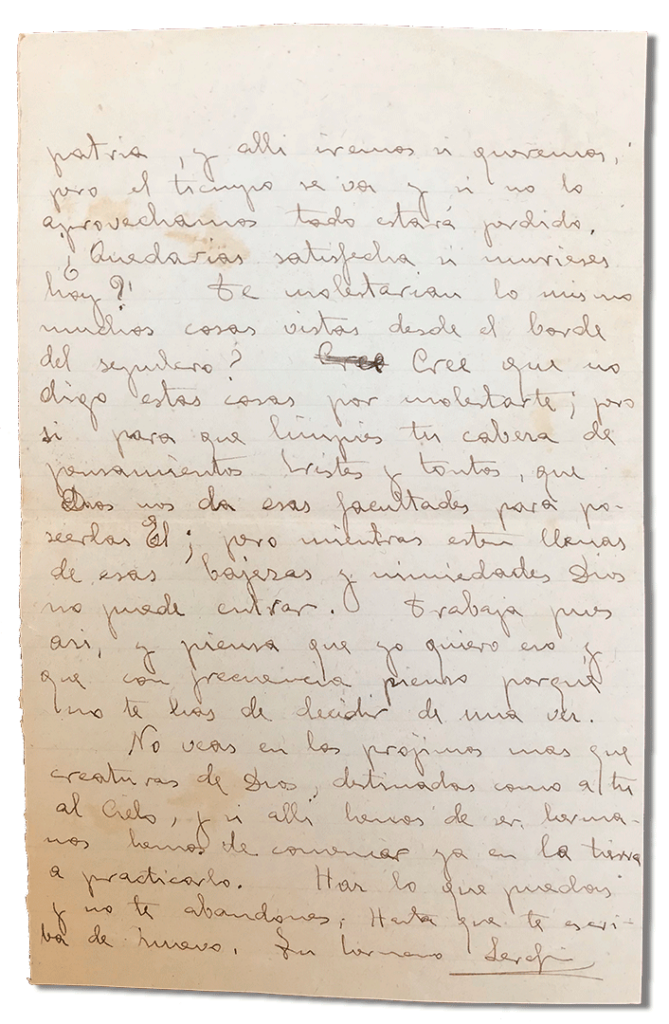 patria, y alli iremos si queremos,
pero el tiempo se va y si no lo
aprovechamos todo estará perdido.
¿Quedarias satisfecha si murieses
hoy? Te molestarian lo mismo
muchas cosas vistas desde el borde
del sepulcro? Cree Cree que no
digo estas cosas por molestarte; pero
si para que limpies tu cabeza de
pensamientos tristes y tontos, que
Dios nos da esas facultades para po-
seerlas El; pero mientras esten llenas
de esas bajezas y nimiedades Dios
no puede entrar. Trabaja pues
asi, y piensa que yo quiero eso y
que con frecuencia pienso porqué
no te has de decidir de una vez.
No veas en los projimos mas que
creaturas de Dios, destinadas como a tu
al Cielo, y si alli hemos de ser herma-
nos hemos de comenzar ya en la tierra
a practicarlo. Haz lo que puedas
y no te abandones. Hasta que te escri-
ba de nuevo. Tu hermano Serafin